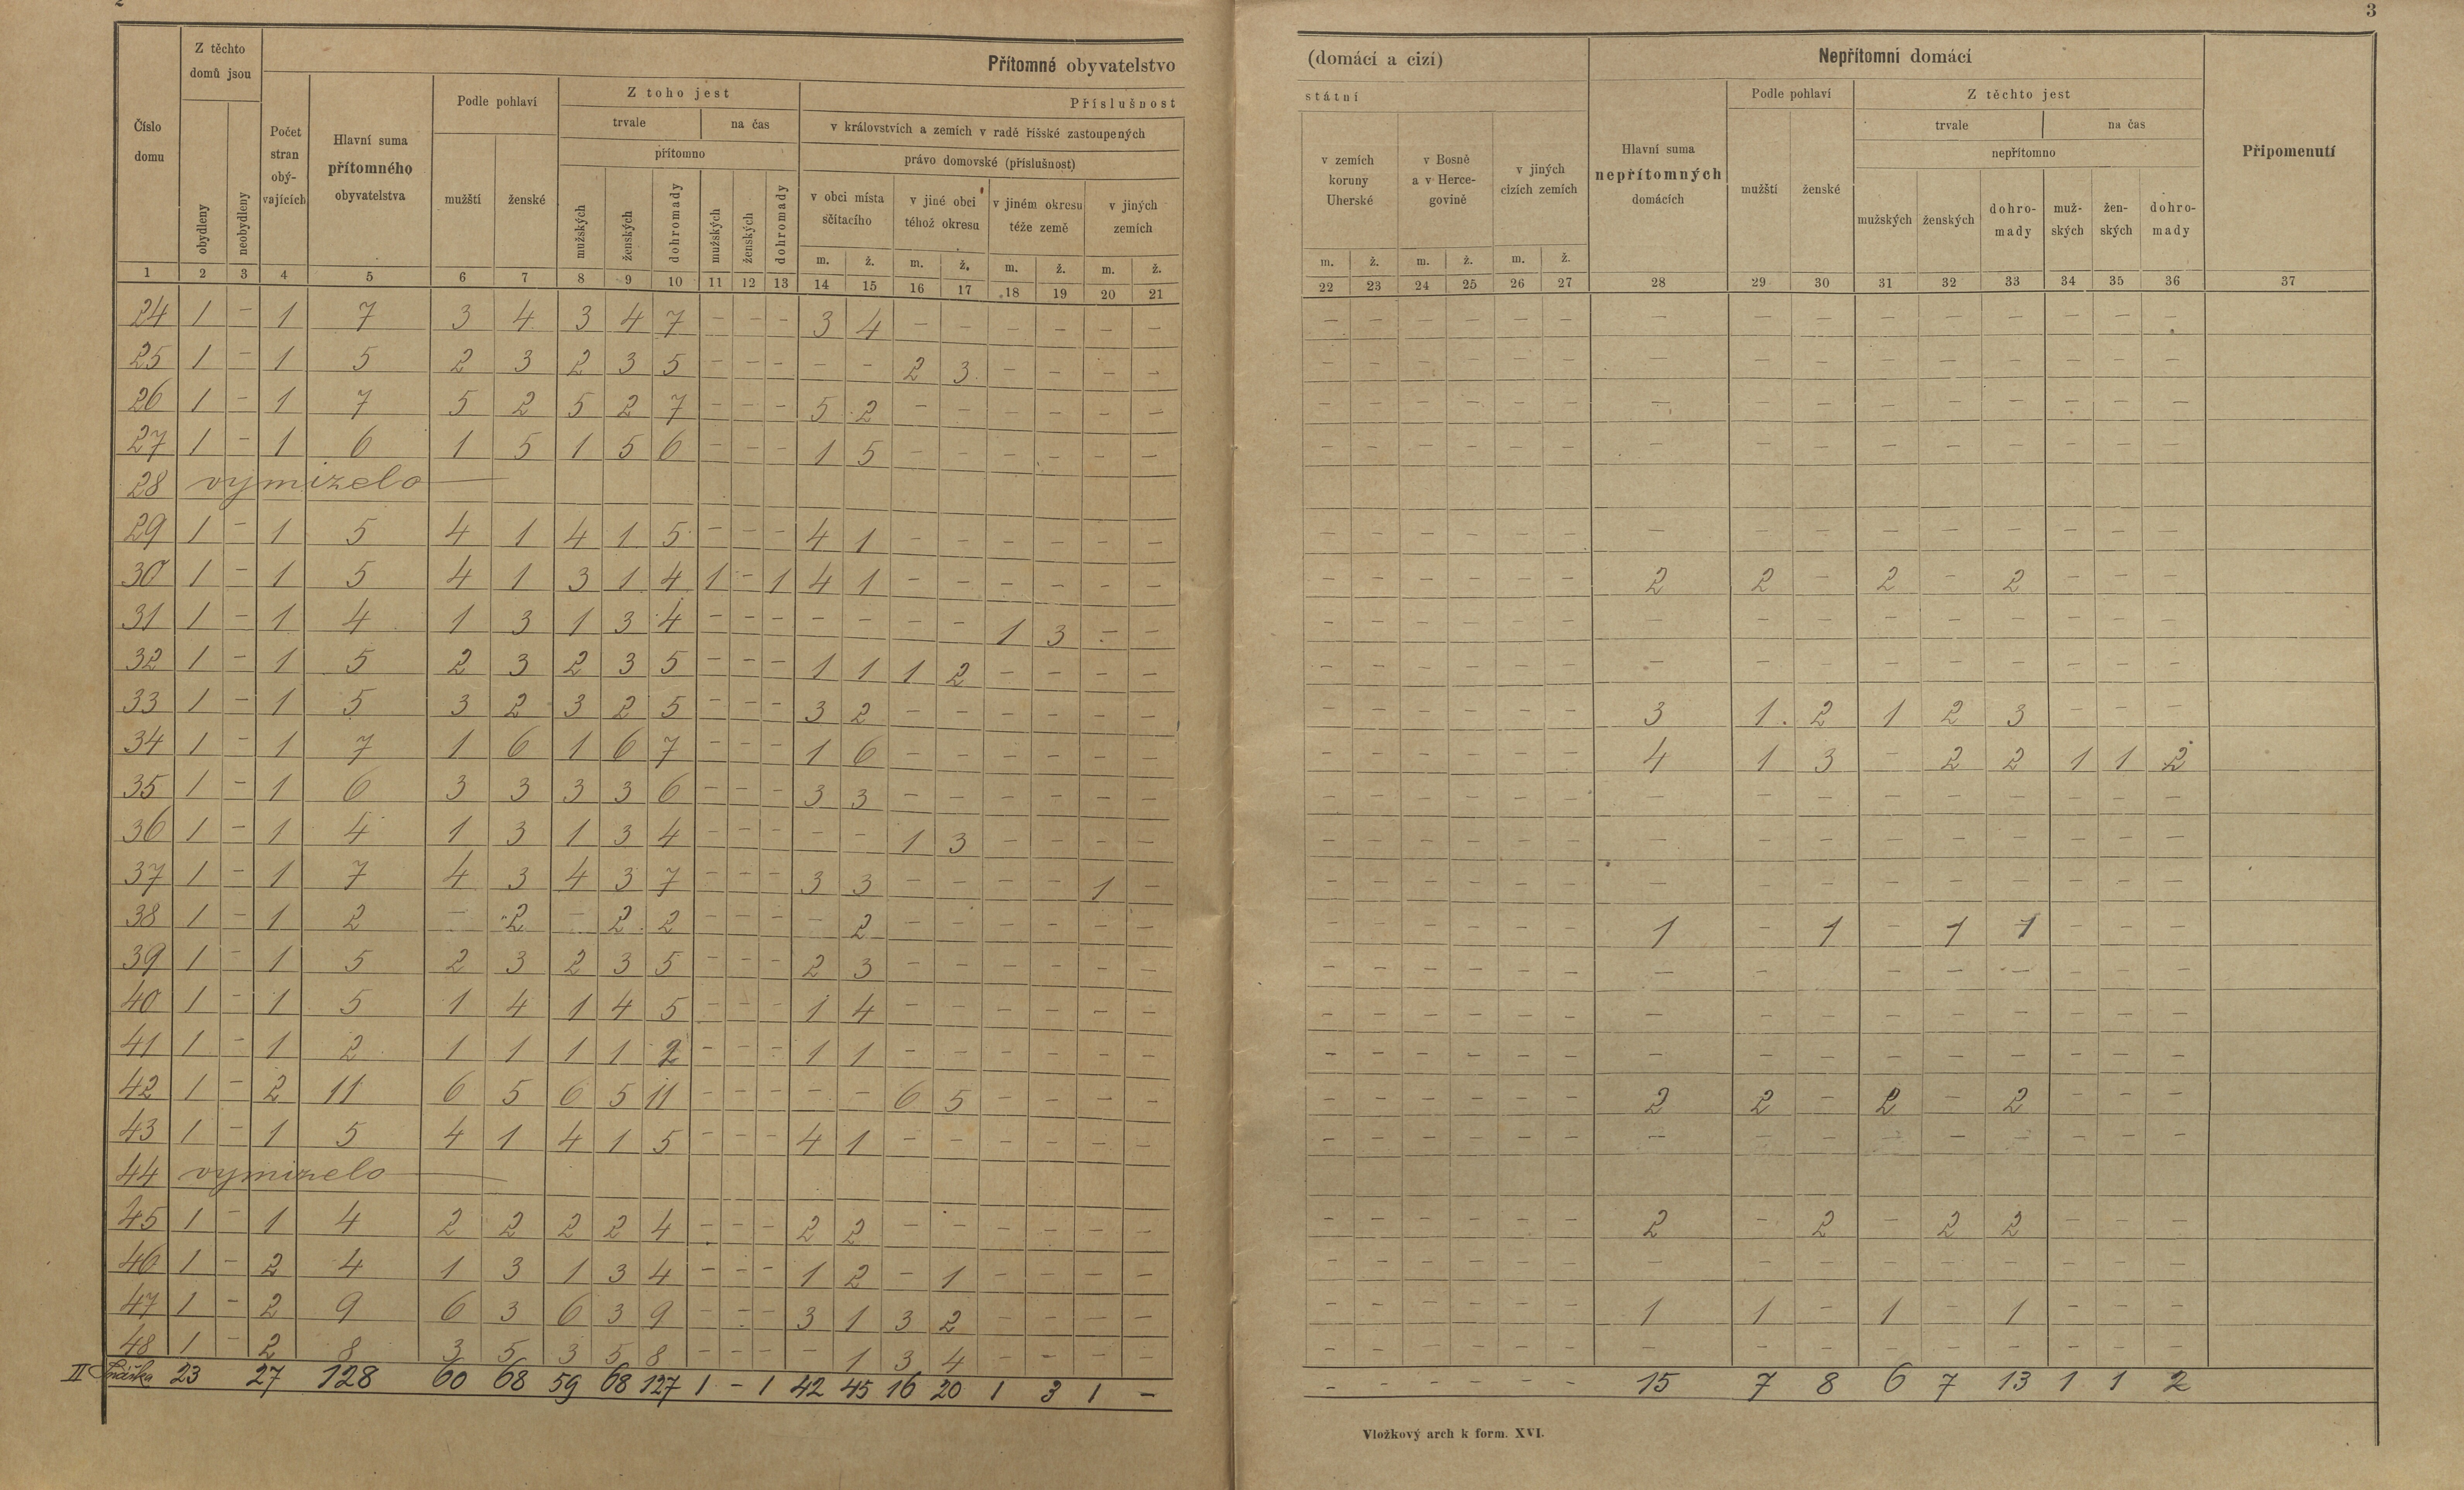 2
3
Přítomné obyvatelstvo
(domácí a cizí)
Nepřítomni domácí
Číslo domu
Z těchto domů jsou
obydleny
neobydleny
Počet stran obývajících
Hlavní suma přítomného obyvatelstva
Podle pohlaví
mužští
ženské
Z toho jest
trvale
na čas
přítomno
mužských
ženských
dohromady
mužských
ženských
dohromady
Příslušnost
státní
v královstvích a zemích v radě říšské zastoupených
právo domovské (příslušnost)
v obci místa sčítacího
v jiné obci téhož okresu
v jiném okresu téže země
v jiných zemích
v zemích koruny Uherské
v Bosně a v Hercegovině
v jiných cizích zemích
Hlavní suma nepřítomných domácích
Podle pohlaví
mužští
ženské
Z těchto jest
trvale
na čas
nepřítomno
mužských
ženských
dohromady
mužských
ženských
dohromady
Připomenutí
m. ž. m. ž. m. ž. m. ž. m. ž. m. ž. m. ž.
1 2 3 4 5 6 7 8 9 10 11 12 13 14 15 16 17 18 19 20 21 22 23 24 25 26 27 28 29 30 31 32 33 34 35 36 37
24 1 – 1 7 3 4 3 4 7 – – – 3 4 – – – – – – – – – – – – – – – – – – – – –
25 1 – 1 5 2 3 2 3 5 – – – – – 2 3 – – – – – – – – – – – – – – – – – – –
26 1 – 1 7 5 2 5 2 7 – – – 5 2 – – – – – – – – – – – – – – – – – – – – –
27 1 – 1 6 1 5 1 5 6 – – – 1 5 – – – – – – – – – – – – – – – – – – – – –
28 vymizelo
29 1 – 1 5 4 1 4 1 5 – – – 4 1 – – – – – – – – – – – – – – – – – – – – –
30 1 – 1 5 4 1 3 1 4 1 – 1 4 1 – – – – – – – – – – – – 2 2 – 2 – 2 – – –
31 1 – 1 4 1 3 1 3 4 – – – – – – – 1 3 – – – – – – – – – – – – – – – – –
32 1 – 1 5 2 3 2 3 5 – – – 1 1 1 2 – – – – – – – – – – – – – – – – – – –
33 1 – 1 5 3 2 3 2 5 – – – 3 2 – – – – – – – – – – – – 3 1 2 1 2 3 – – –
34 1 – 1 7 1 6 1 6 7 – – – 1 6 – – – – – – – – – – – – 4 1 3 – 2 2 1 1 2
35 1 – 1 6 3 3 3 3 6 – – – 3 3 – – – – – – – – – – – – – – – – – – – – –
36 1 – 1 4 1 3 1 3 4 – – – – – 1 3 – – – – – – – – – – – – – – – – – – –
37 1 – 1 7 4 3 4 3 7 – – – 3 3 – – – – 1 – – – – – – – – – – – – – – – –
38 1 – 1 2 – 2 – 2 2 – – – – 2 – – – – – – – – – – – – 1 – 1 – 1 1 – – –
39 1 – 1 5 2 3 2 3 5 – – – 2 3 – – – – – – – – – – – – – – – – – – – – –
40 1 – 1 5 1 4 1 4 5 – – – 1 4 – – – – – – – – – – – – – – – – – – – – –
41 1 – 1 2 1 1 1 1 2 – – – 1 1 – – – – – – – – – – – – – – – – – – – – –
42 1 – 2 11 6 5 6 5 11 – – – – – 6 5 – – – – – – – – – – 2 2 – 2 – 2 – – –
43 1 – 1 5 4 1 4 1 5 – – – 4 1 – – – – – – – – – – – – – – – – – – – – –
44 vymizelo
45 1 – 1 4 2 2 2 2 4 – – – 2 2 – – – – – – – – – – – – 2 – 2 – 2 2 – – –
46 1 – 2 4 1 3 1 3 4 – – – 1 2 – 1 – – – – – – – – – – – – – – – – – – –
47 1 – 2 9 6 3 6 3 9 – – – 3 1 3 2 – – – – – – – – – – 1 1 – 1 – 1 – – –
48 1 – 2 8 3 5 3 5 8 – – – – 1 3 4 – – – – – – – – – – – – – – – – – – –
II Snáška 23 27 128 60 68 59 68 127 1 – 1 42 45 16 20 1 3 1 – – – – – – – 15 7 8 6 7 13 1 1 2
Vložkový arch k form. XVI.